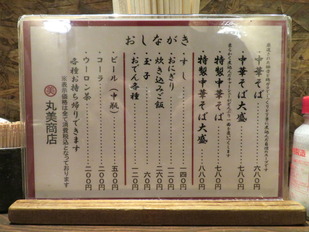 おしながき
中華そば 六八〇円
中華そば大盛 七八〇円
特製中華そば 七八〇円
特製中華そば大盛 八八〇円
すし 一四〇円
おにぎり
炊き込みご飯 二六〇円
玉子 六〇円
おでん各種 一二〇円
ビール（中瓶） 五〇〇円
コーラ 二〇〇円
ウーロン茶 二〇〇円
各種お持ち帰りできます
※表示価格は全て消費税込となっております
丸美商店